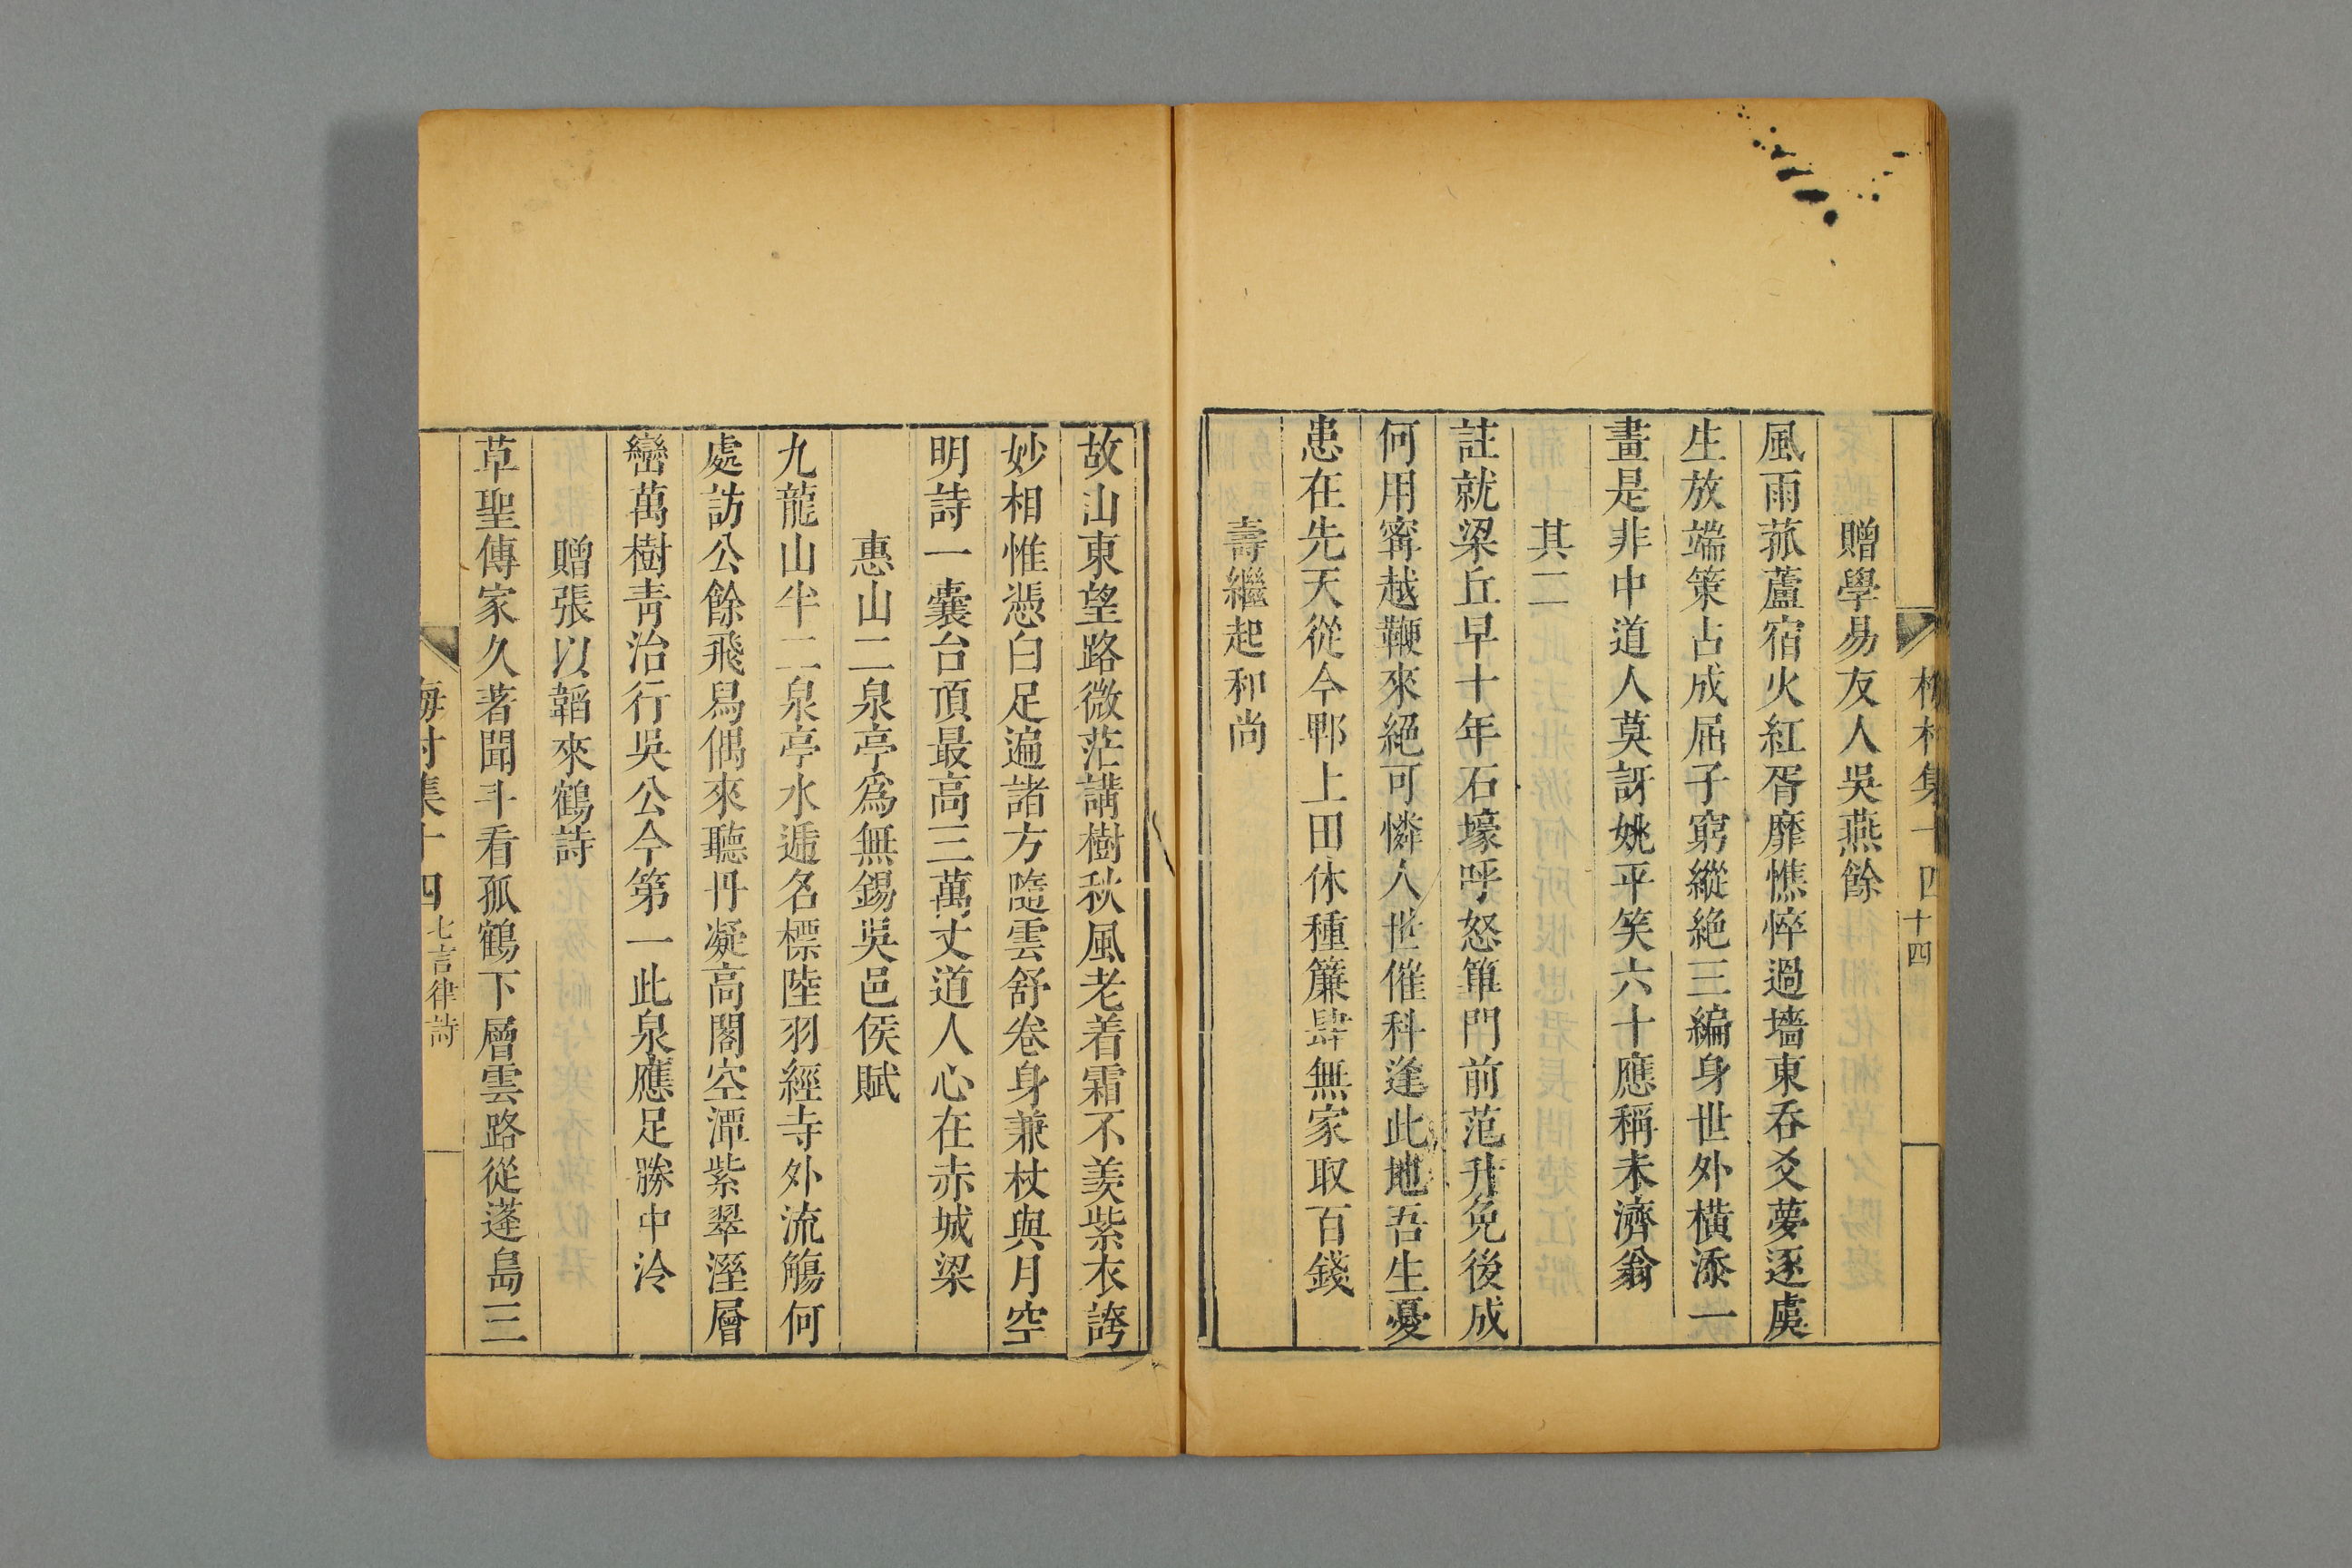 梅村集十四 十四
贈學易友人吳燕餘
風雨菰蘆宿火紅胥靡憔悴過墻東吞爻夢逐虞
生放端策占成屈子窮縱絶三編身世外橫添一
畫是非中道人莫訝姚平笑六十應稱未濟翁
其二
註就梁丘早十年石壕呼怒篳門前范升免後成
何用甯越鞭來絕可憐人世催科逢此地吾生憂
患在先天從今郫上田休種簾肆無家取百錢
壽繼起和尚
故山東望路微茫講樹秋風老着霜不羡紫衣誇
妙相惟憑白足遍諸方隨雲舒卷身兼杖與月空
明詩一囊台頂最高三萬丈道人心在赤城梁
惠山二泉亭爲無錫吳邑侯賦
九龍山半二泉亭水遞名標陸羽經寺外流觴何
處訪公餘飛舄偶來聽丹凝高閣空潭紫翠溼層
巒萬樹靑治行吳公今第一此泉應足勝中泠
贈張以韜來鶴詩
草聖傳家久著聞斗看孤鶴下層雲路從蓬島三
梅村集十四 七言律詩